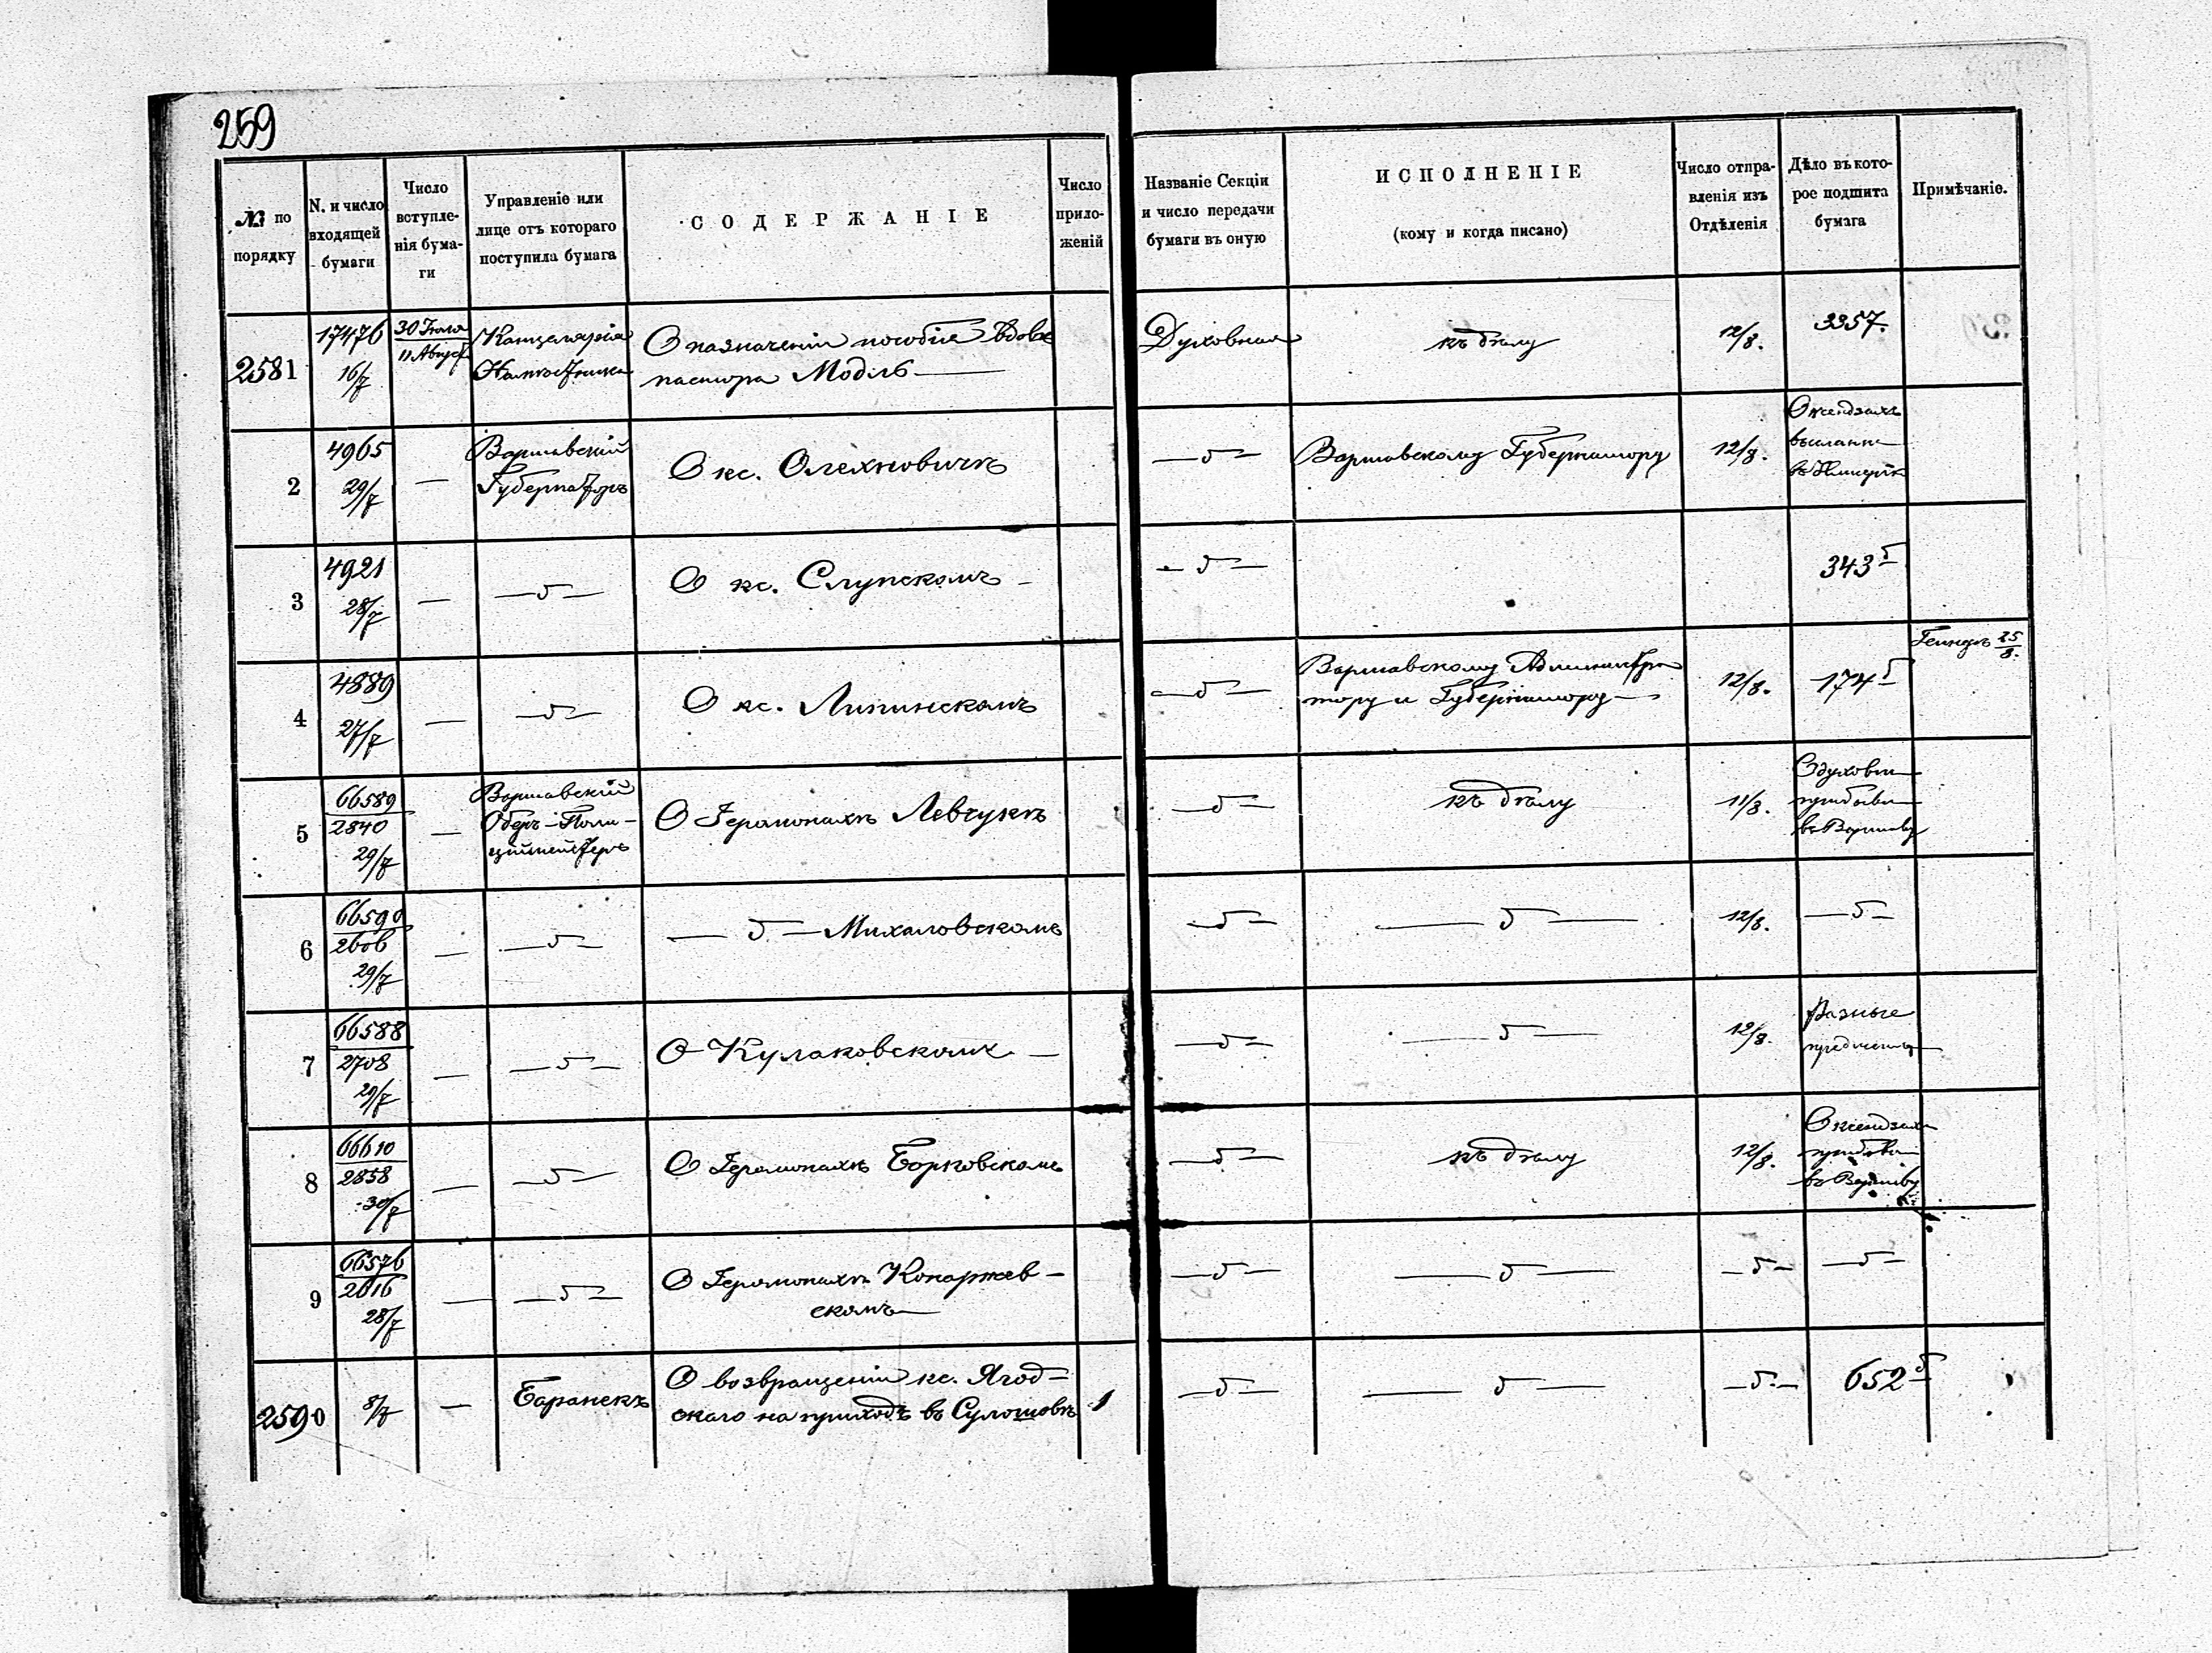 259
№ по порядку
N. и число входящей бумаги
Число вступле-нія бума-ги
Управленіе или лице отъ котораго поступила бумага
СОДЕРЖАНІЕ
Число прило-женій
Названіе Секціи и число передачи бумаги въ оную
ИСПОЛНЕНІЕ
(кому и когда писано)
Число отпра-вленія изъ Отдѣленія
Дѣло въ кото-рое подшита бумага
Примѣчаніе.
2581
17476
16/7
30 Іюля
11 Август
Канцелярія
Намѣстника
О назначеніи пособія вдовѣ
пастора Модль
Духовная
къ дѣлу
12/8.
3357.
2
4965
29/7
—
Варшавскій
Губернаторъ
О кс. Олехновичѣ
— д —
Варшавскому Губернатору
12/8.
О ксендзахъ
высланн
въ Имперію
3
4921
28/7
—
— д —
О кс. Слупскомъ —
— д —
343 д
4
4889
27/7
—
— д —
О кс. Липинскомъ
— д —
Варшавскому Администра
тору и Губернатору —
12/8.
174 д
25/8.
5
66589
2840
29/7
—
Варшавскій
Оберъ-Поли-
цiймейстеръ
О Іеромонахѣ Левчукѣ
— д —
къ дѣлу
11/8.
О духовн
прибывш
въ Варшаву
6
66590
2606
29/7
—
— д —
— д — Михаловскомъ
— д —
— д —
12/8.
— д —
7
66588
2708
29/7
—
— д —
О Кулаковскомъ —
— д —
— д —
12/8.
Разные
предметы
8
66610
2858
30/7
—
— д —
О Іеромонахѣ Борковскомъ
— д —
къ дѣлу
12/8.
О ксендзахъ
прибывш
въ Варшаву
9
66576
2616
28/7
—
— д —
О Іеромонахѣ Конаржев-
скомъ
— д —
— д —
— д —
— д —
2590
8/7
—
Баранекъ
О возвращеніи кс. Ягод-
скаго на приходъ въ Сулошовѣ
1
— д —
— д —
— д —
652 д